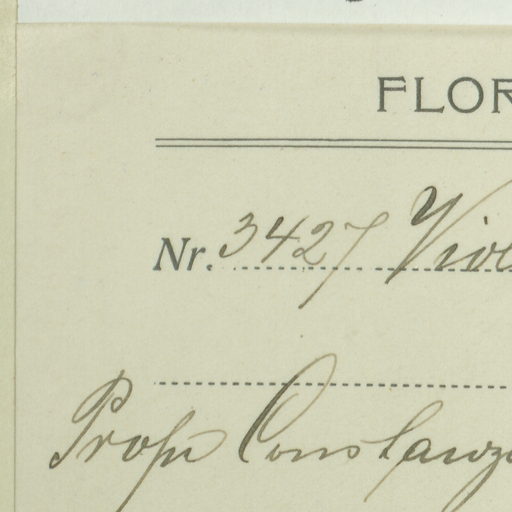 FLOR
Nr. 3427 Viol
Prope Constanza